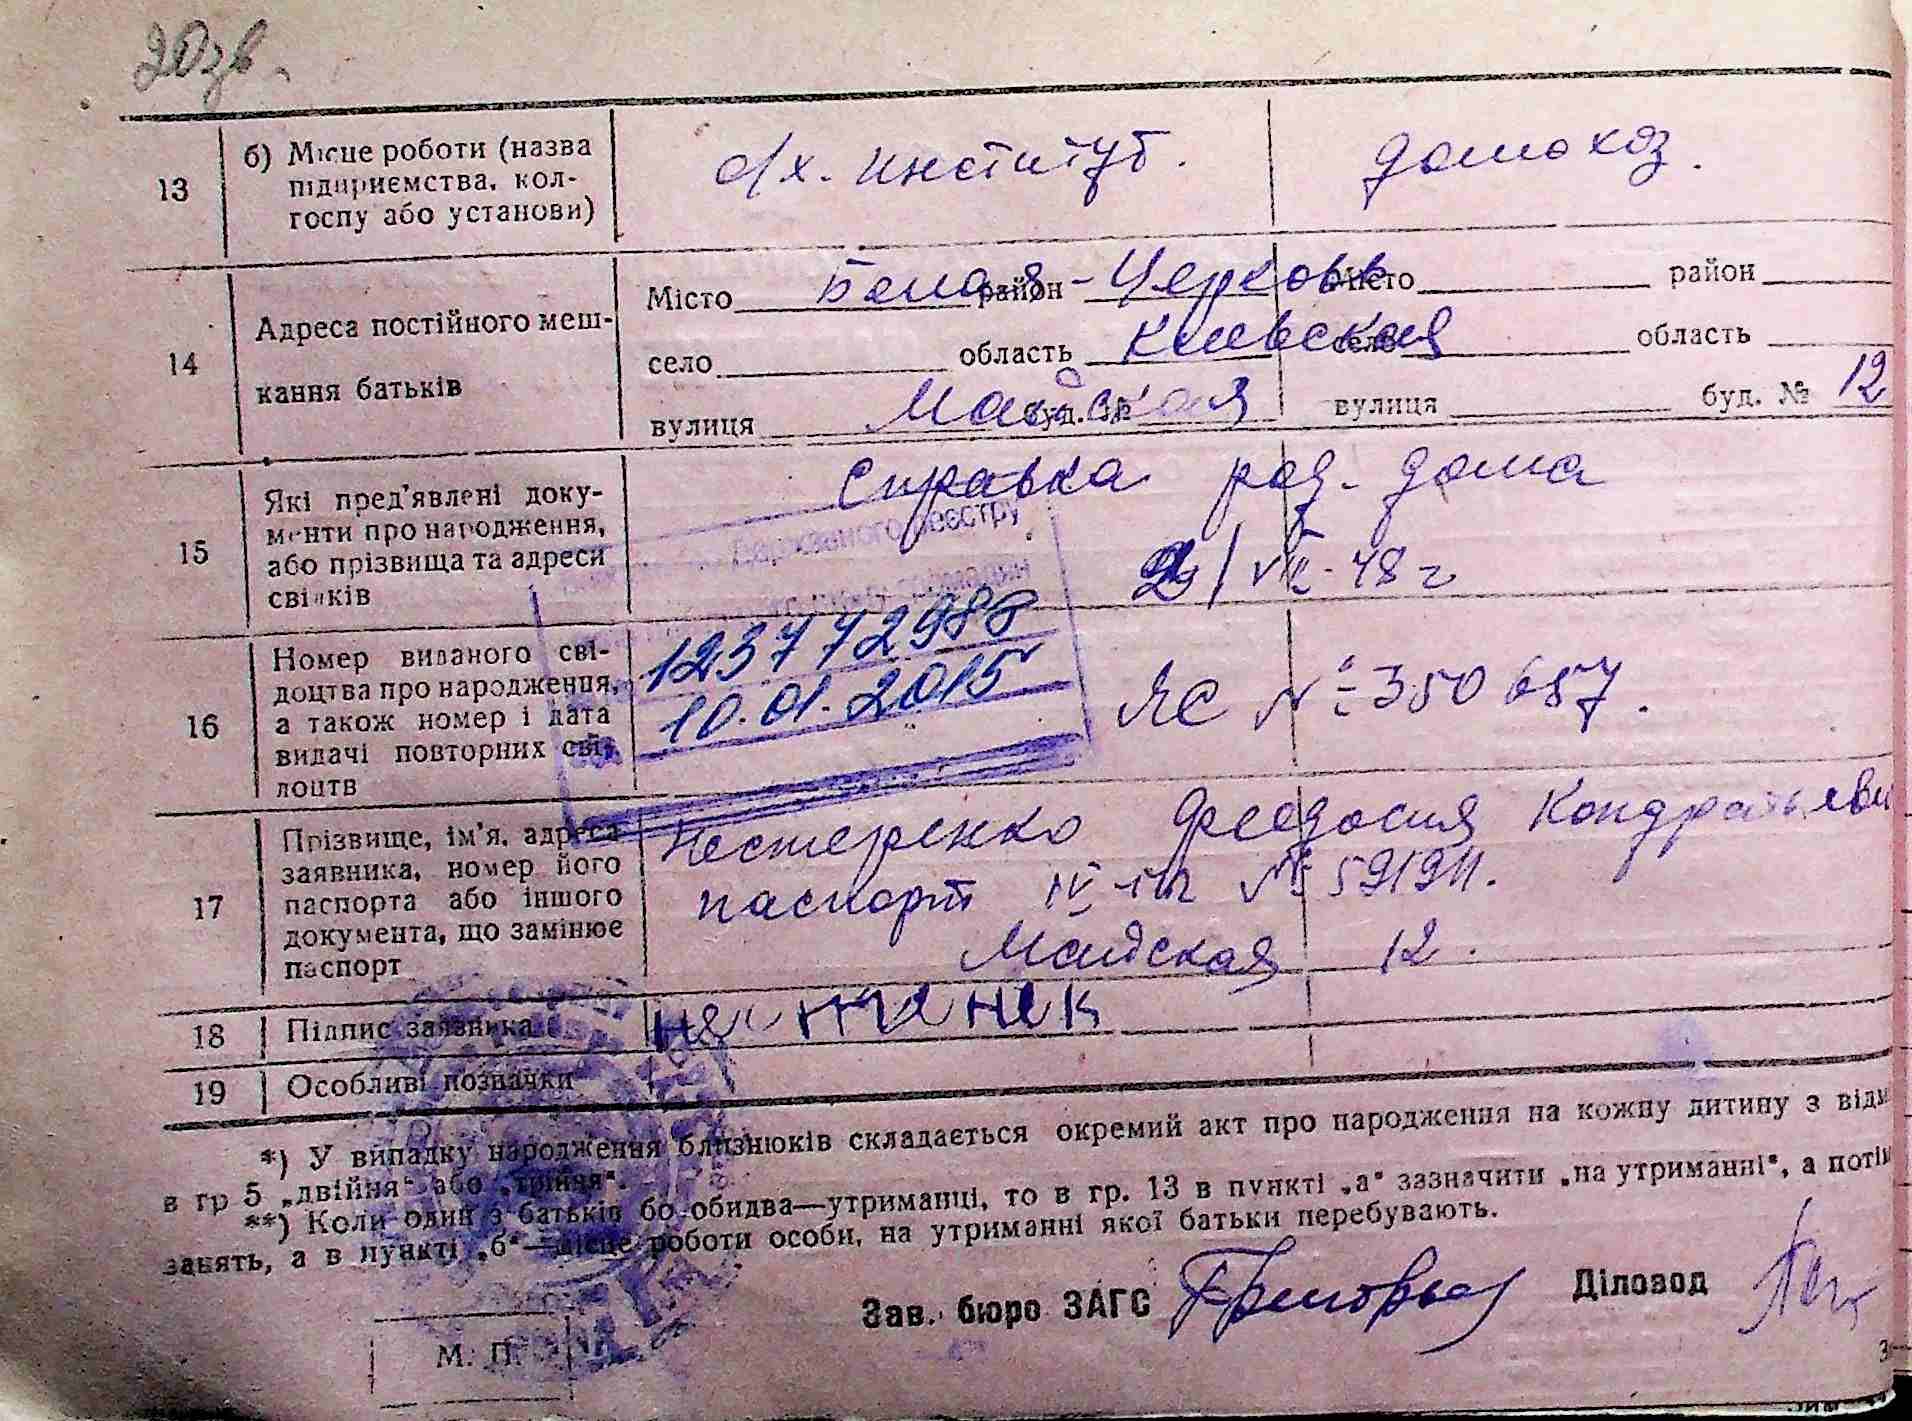 20зв.
13 б) Місце роботи (назва підприємства, колгоспу або установи) с/х. институт. домохоз.
14 Адреса постійного мешкання батьків
Місто Белая-Церковь район місто район
село область Киевская село область
вулиця Майская буд. № вулиця буд. № 12
15 Які пред'явлені документи про народження, або прізвища та адреси свідків
Справка род. дома
/VII-48 г
Державного реєстру
громадян
16 Номер виданого свідоцтва про народження, а також номер і дата видачі повторних свідоцтв
123772988
10.01.2015
ЯС № 350657.
17 Прізвище, ім'я, адреса заявника, номер його паспорта або іншого документа, що замінює паспорт
Нестеренко Феодосия Кондратьевн
паспорт IV № 591911.
Майская 12.
18 Підпис заявника
19 Особливі позначки
*) У випадку народження близнюків складається окремий акт про народження на кожну дитину з відм
в гр 5 „двійня“ або „трійня“.
**) Коли один з батьків бо обидва—утриманці, то в гр. 13 в пункті „а“ зазначити „на утриманні“, а потім
занять, а в пункті „б“—місце роботи особи, на утриманні якої батьки перебувають.
Зав. бюро ЗАГС Діловод
М. П.